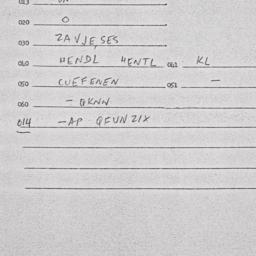 020 O
030 ZAVJESES
010 HENDL HENTL 061 KL
050 CUEFENEN 051 -
060 - QKNN
014 -AP QFUNZIX